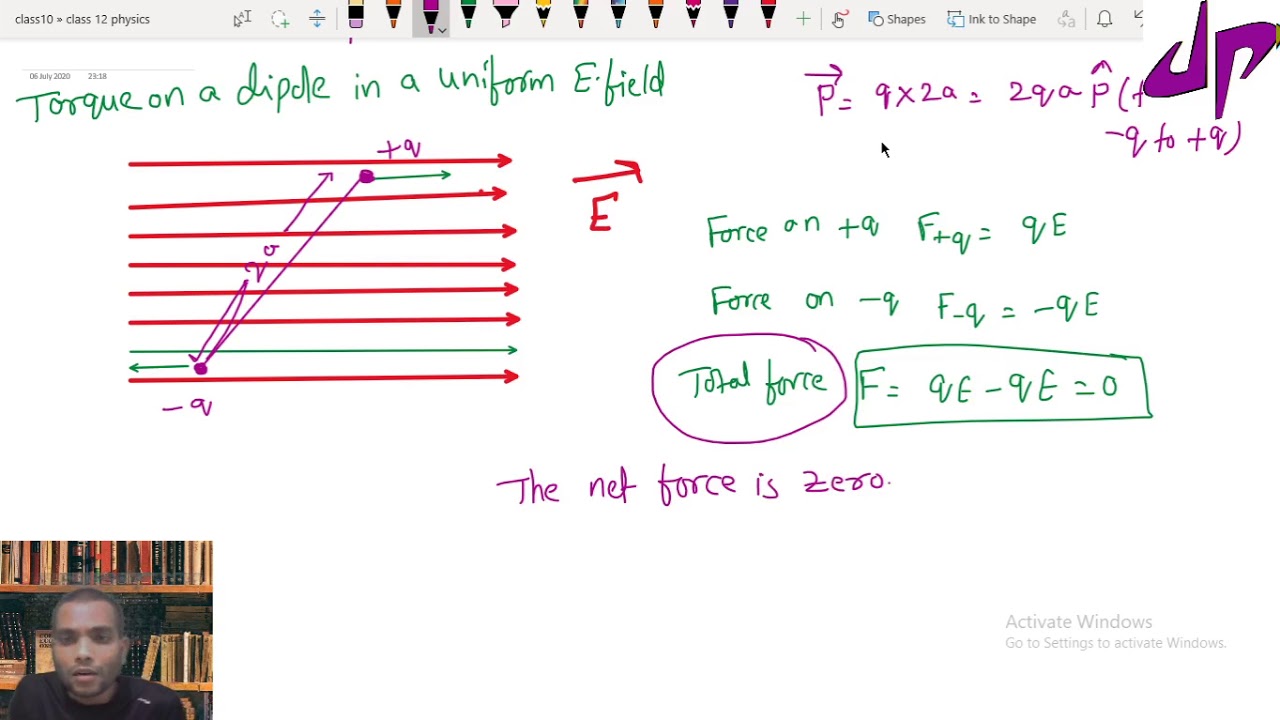 class10 » class 12 physics
Shapes
Ink to Shape
06 July 2020 23:18
Torque on a dipole in a uniform E.field
P = q×2a = 2qa P̂ (
-q to +q)
+q
E
2a
-q
Force on +q F+q = qE
Force on -q F-q = -qE
Total force F = qE - qE = 0
The net force is zero.
dp
Activate Windows
Go to Settings to activate Windows.